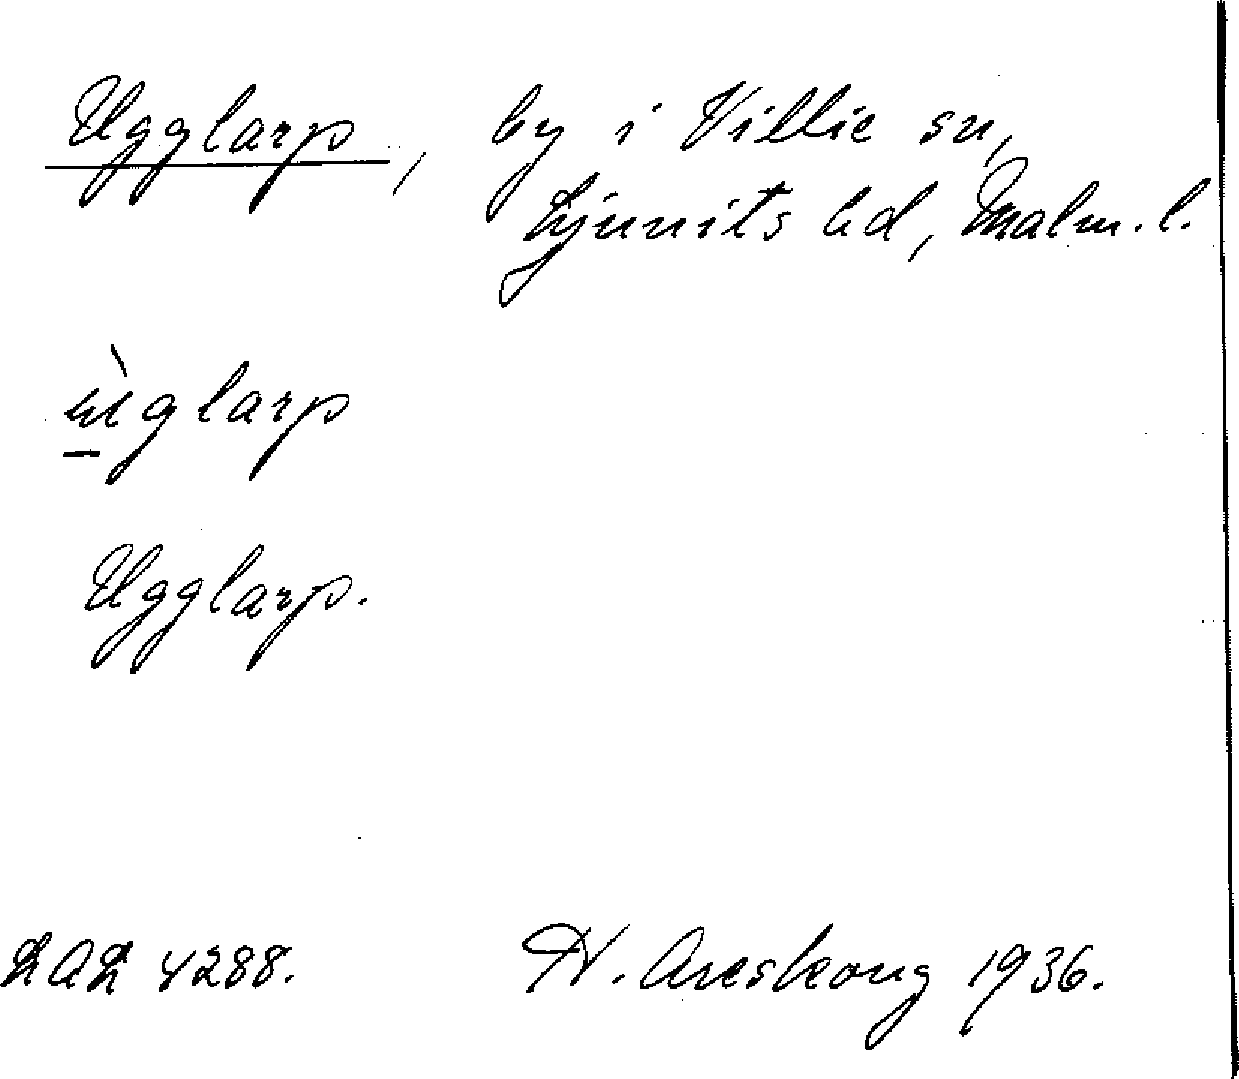 Ugglarp, by i Villie sn,
Ljunits hd, Malm. l.
ùglarp
Ugglarp.
LAL 4288. H. Areskoug 1936.